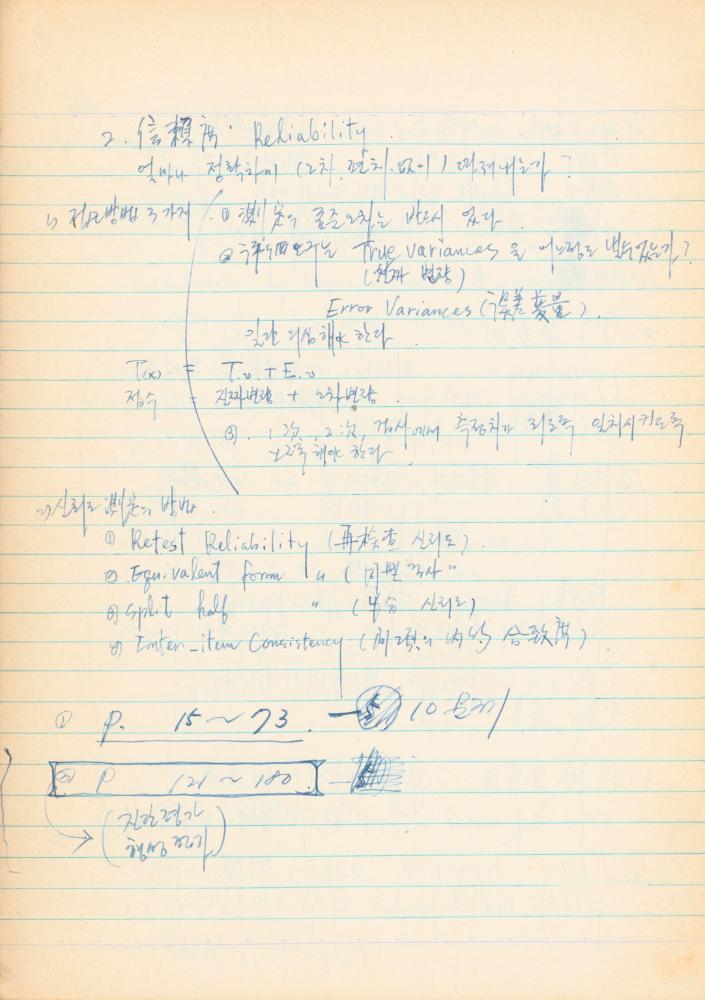 2. 信賴度. Reliability
얼마나 정확하게 (오차, 편차, 없이) 따져내는가?
1) 접근방법 3가지 ① 測定의 표준오차는 반드시 있다.
② True variances 을 어느정도 낼수있는가?
(진짜 변량)
Error Variances (誤差 變量).
일단 의심해야 한다.
T(x) = T.v + E.v
점수 = 진짜변량 + 오차변량.
③. 1次, 2次, 검사에서 측정치가 되도록 일치시키도록
노력해야 한다
2) 신뢰도 測定의 방법.
① Retest Reliability (再檢查 신뢰도).
② Equivalent form 〃 (同型검사 〃
③ Split half 〃 (半分 신뢰도)
④ Inter-item Consistency (問項의 內的 合致度).
① P. 15~73. 10문제
② P 121~180.
(진단평가
형성평가)